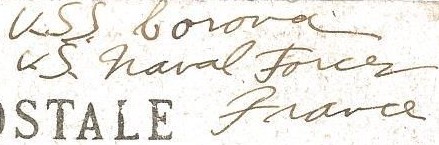 U.S.S. Corona
U.S. Naval Forces
OSTALE France